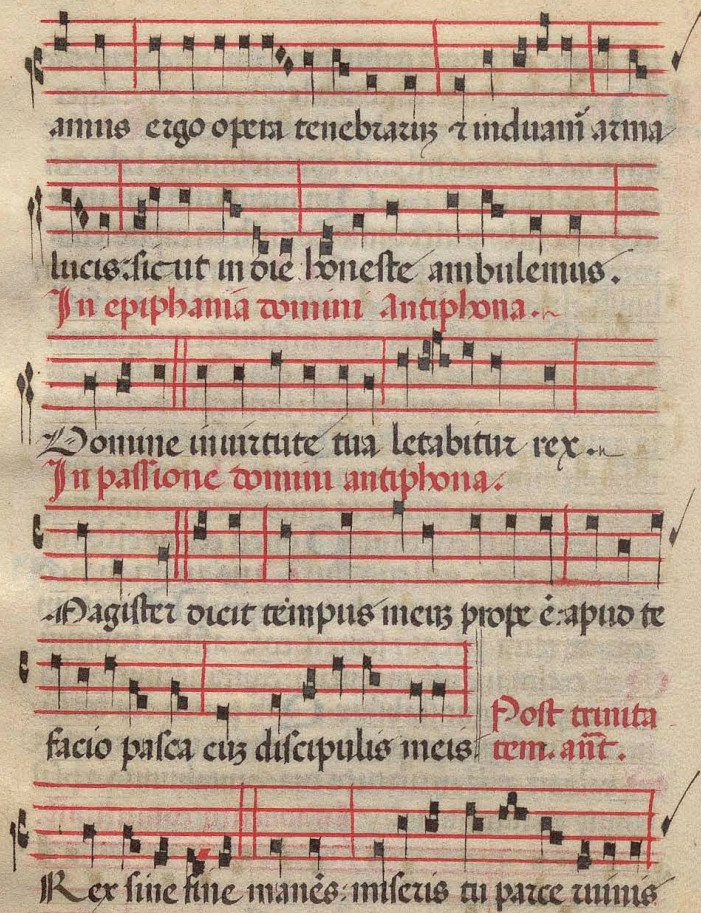 amus ergo opera tenebraruꝫ ⁊ induam̃ arma
lucis: sicut in die honeste ambulemus.
In epiphania domini Antiphona.
Domine in uirtute tua letabitur rex.
In passione domini antiphona.
Magister dicit tempus meuꝫ prope ẽ: apud te
facio pasca cuꝫ discipulis meis.
Post trinita
tem. añt.
Rex sine fine manẽs: miseris tu parce ruinis